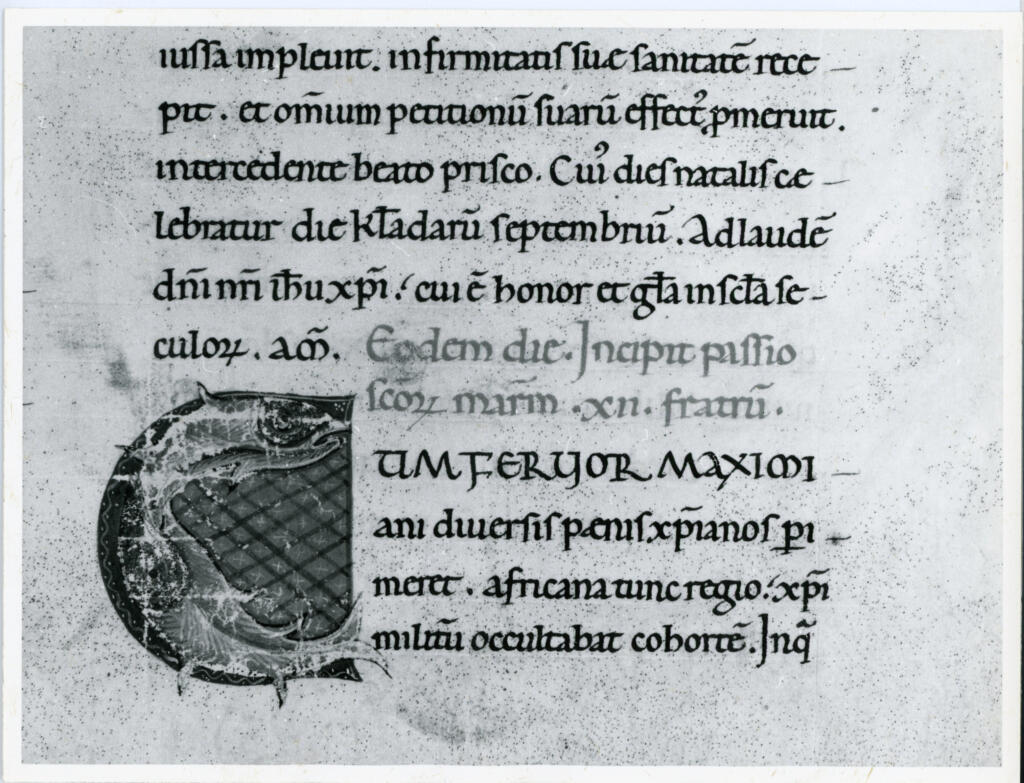 iussa impleuit. infirmitatis suę sanitatē rece
pit. et om̄ium petitionū suarū effectꝰ ꝓmeruit.
intercedente beato prisco. Cuiꝰ dies natalis cę
lebratur die kl̄adarū septembriū. Ad laudē
dn̄i nr̄i ih̄u xp̄i. cui ē honor et gl̄a in scl̄a se
culoꝝ. am̄. Eodem die. Incipit passio
sc̄oꝝ mar̄m .xii. fratrū.
CUM FERUOR MAXIMI
ani diuersis pęnis xp̄ianos ꝑi
meret. africana tunc regio. xp̄i
militū occultabat cohortē. In q̄